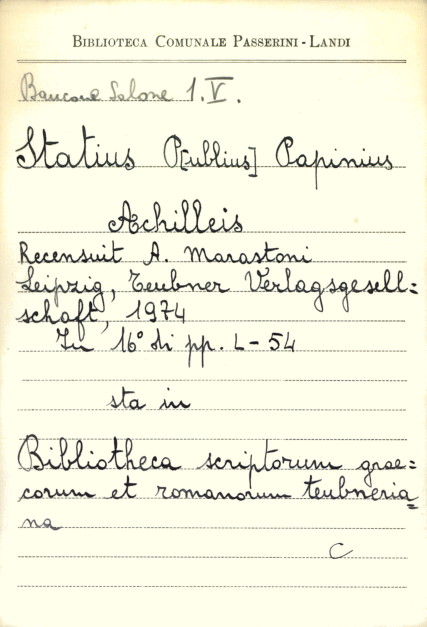 BIBLIOTECA COMUNALE PASSERINI-LANDI
Bancone Salone 1.V.
Statius P[ublius] Papinius
Achilleis
Recensuit A. Marastoni
Leipzig, Teubner Verlagsgesell=
schaft, 1974
In 16° di pp. L-54
sta in
Bibliotheca scriptorum grae=
corum et romanorum teubneria=
na
C